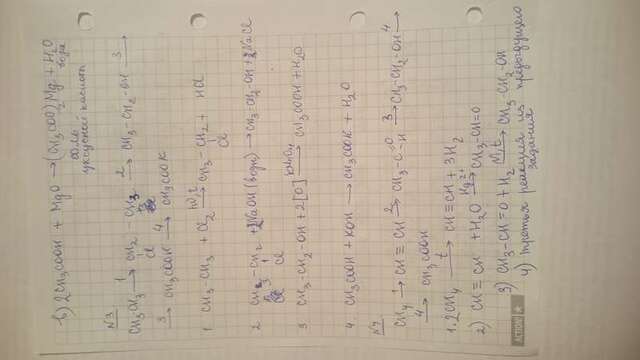 в) 2CH₃COOH + MgO → (CH₃COO)₂Mg + H₂O
соль вода
уксусной кислоты
№3
CH₃CH₃ →¹ CH₂ – CH₃ →² CH₃-CH₂-OH →³
Cl
→³ CH₃COOH →⁴ CH₃COOK
1 CH₃-CH₃ + Cl₂ → CH₃-CH₂ + HCl
Cl
2 CH₃-CH₂ + NaOH (водн) → CH₃-CH₂-OH + NaCl
Cl
3 CH₃-CH₂-OH + 2[O] →KMnO₄ CH₃COOH + H₂O
4 CH₃COOH + KOH → CH₃COOK + H₂O
CH₄ →¹ CH ≡ CH →² CH₃-C=O-H →³ CH₃-CH₂-OH →⁴
→⁴ CH₃COOH
1. 2CH₄ →t CH≡CH + 3H₂
2) CH ≡ CH + H₂O →Hg²⁺ CH₃-CH=O
3) CH₃-CH=O + H₂ →Ni,t CH₃CH₂-OH
4) третья реакция из предыдущего
задания
ACTION!